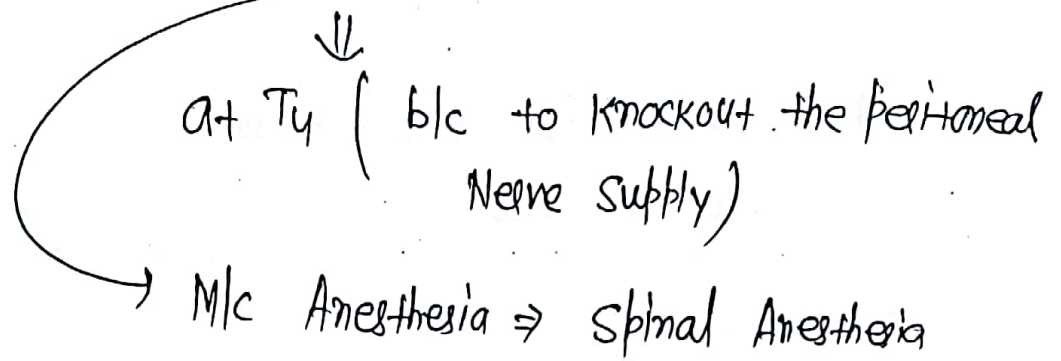 ⇓
at T4 ( b/c to knockout the peritoneal
Nerve supply)
→ M/c Anesthesia ⇒ Spinal Anesthesia